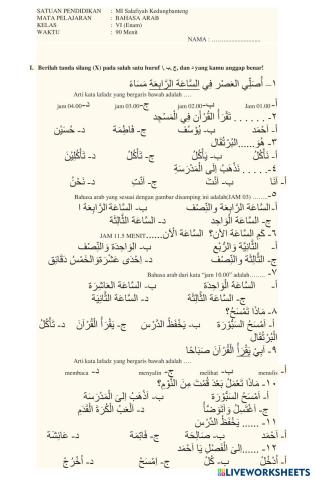 SATUAN PENDIDIKAN : MI Salafiyah Kedungbanteng
MATA PELAJARAN : BAHASA ARAB
KELAS : VI (Enam)
WAKTU : 90 Menit
NAMA : ..............................
I. Berilah tanda silang (X) pada salah satu huruf أ, ب, ج, dan د yang kamu anggap benar!
١– أُصَلِّي العَصْرَ فِي السَّاعَةِ الرَّابِعَةِ مَسَاءً
Arti kata lafadz yang bergaris bawah adalah ....
أ- Jam 01.00 ب- jam 02.00 ج- jam 03.00 د- jam 04.00
٢- . . . . . . . تَقْرَأُ القُرْأَنَ فِي المَسْجِدِ
أ- أَحْمَد ب- يُوْسُفَ ج- فَاطِمَة د- حُسَيْن
٣- هُوَ......البُرْتُقَال
أ- نَأْكُلُ ب- يَأْكُلُ ج- تَأْكُلُ د- تَأْكُلِيْنَ
٤-. . . . . نَذْهَبُ إِلَى المَدْرَسَةِ
أ- أَنَا ب- أَنْتَ ج- أَنْتِ د- نَحْنُ
٥- Bahasa arab yang sesuai dengan gambar disamping ini adalah(JAM 03) .......
أ-السَّاعَة الرَّابِعَة والنِّصْف ب- السَّاعَة الرَّابِعَة ا
ج- السَّاعَة الْوَاحِد د- السَّاعَة الثَّالِثَة
٦- كَمِ السَّاعَة الآن؟ السَّاعَةُ الْآن......JAM 11.5 MENIT
أ- الثَّانِيَّة وَالرُّبْع ب- الوَاحِدَة وَالنِّصْف
ج- الثَّالِثَة والنِّصْف د- اِحْدَى عَشْرَة وَالخَمْسُ دَقَائِق
٧- Bahasa arab dari kata "jam 10.00" adalah........
أ- السَّاعَة الْوَاحِدَة ب- السَّاعَة العَاشِرَة
ج- السَّاعَة الثَّالِثَة د- السَّاعَة الثَّانِيَة
٨- مَاذَا تَمْسَحُ؟
أ- أَمْسَحُ السَّبُّوْرَة ب- يَحْفَظُ الدَّرْسَ ج- يَقْرَأُ الْقُرْآنَ د- تَأْكُلُ
الْبُرْتُقَال
٩- أَبِيْ يَقْرَأُ الْقُرْآنَ صَبَاحًا
Arti kata lafadz yang bergaris bawah adalah ....
أ- menulis ب- melihat ج- menyalin د- membaca
١٠- مَاذَا تَعْمَلُ بَعْدَ قُمْتَ مِنَ النَّوْمِ؟
أ- اَمْسَحُ السَّبُّوْرَة ب- أَذْهَبُ إِلَى الْمَدْرَسَة
ج- أَغْتَسِلُ وَأَتَوَضَّأُ د- أَلْعَبُ الْكُرَة الْقَدَمِ
١١- ...... يَحْفَظُ الدَّرْسَ
أ- اَحْمَد ب- صَالِحَة ج- فَاطِمَة د- عَائِشَة
١٢- ......إِلَى الْفَصْلِ يَا أَحْمَد
أ- اُدْخُلْ ب- كُلْ ج- اِمْسَحْ د- اُخْرُجْ
LIVEWORKSHEETS